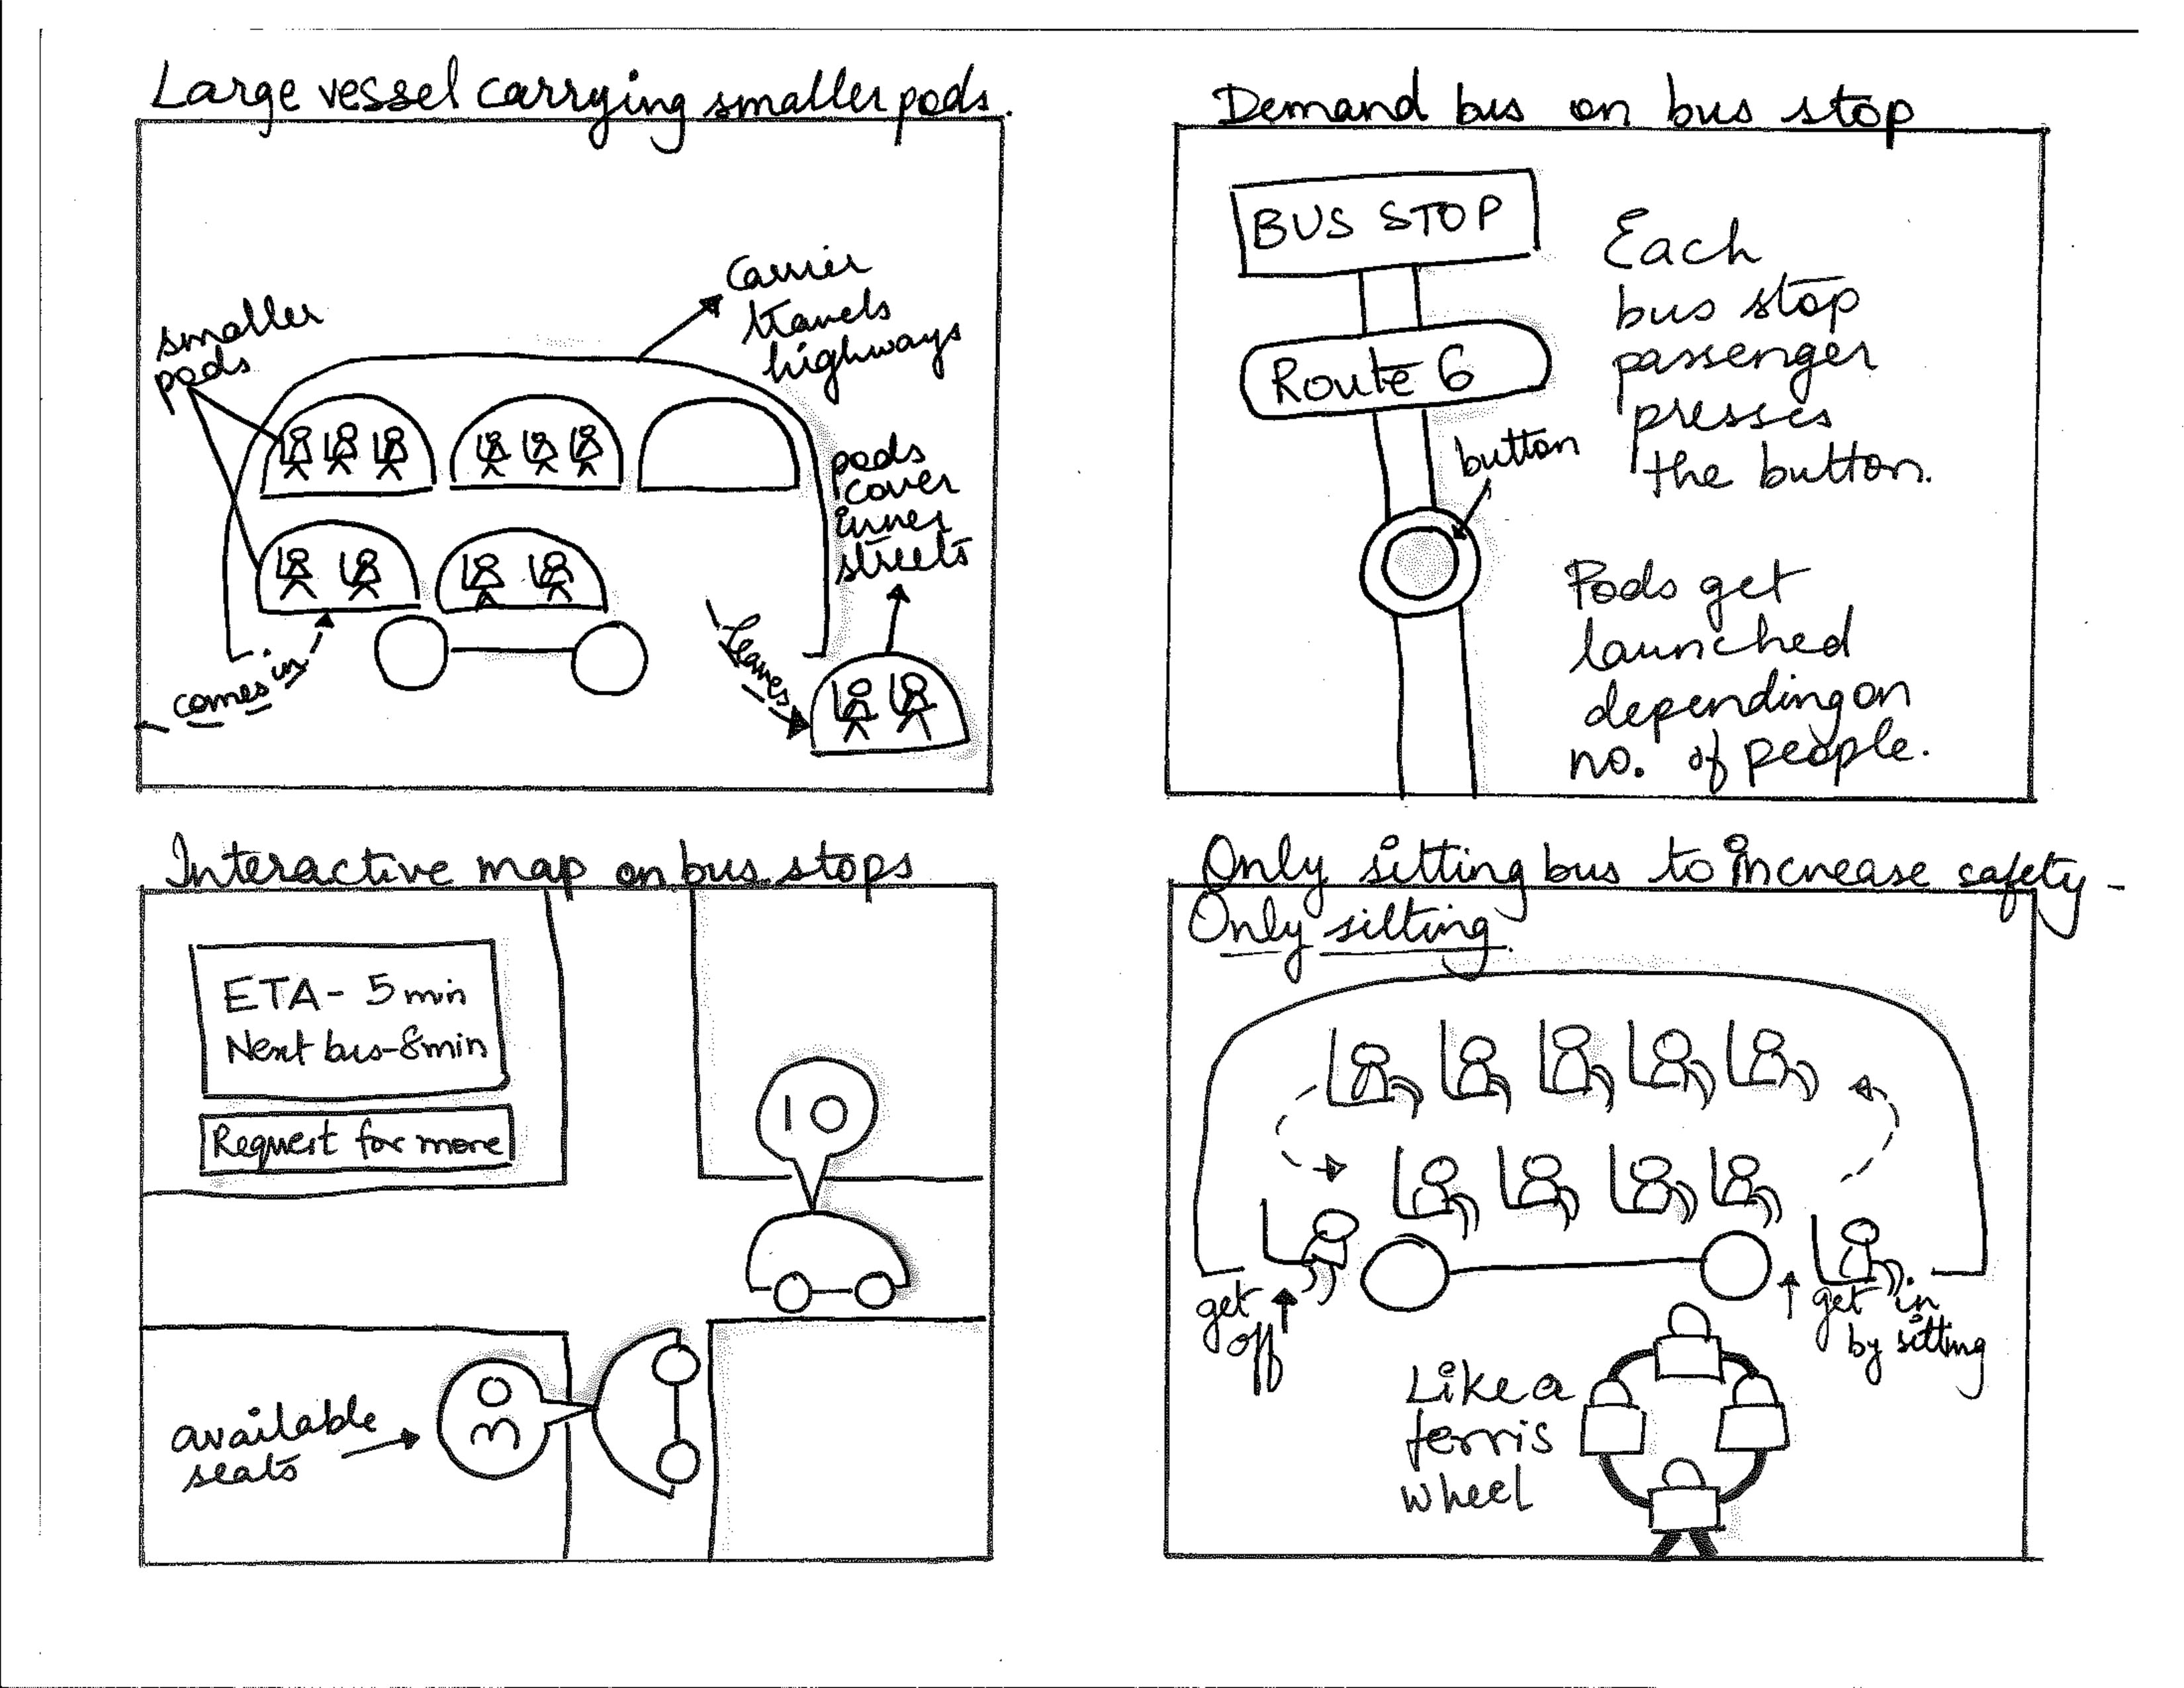 Large vessel carrying smaller pods.
smaller
pods
Carrier
travels
highways
pods
cover
inner
streets
comes in
leaves
Demand bus on bus stop
BUS STOP
Route 6
button
Each
bus stop
passenger
presses
the button.
Pods get
launched
depending on
no. of people.
Interactive map on bus stops
ETA - 5 min
Next bus - 8 min
Request for more
10
30
available
seats
Only sitting bus to increase safety -
Only sitting.
get
off
get in
by sitting
Like a
ferris
wheel